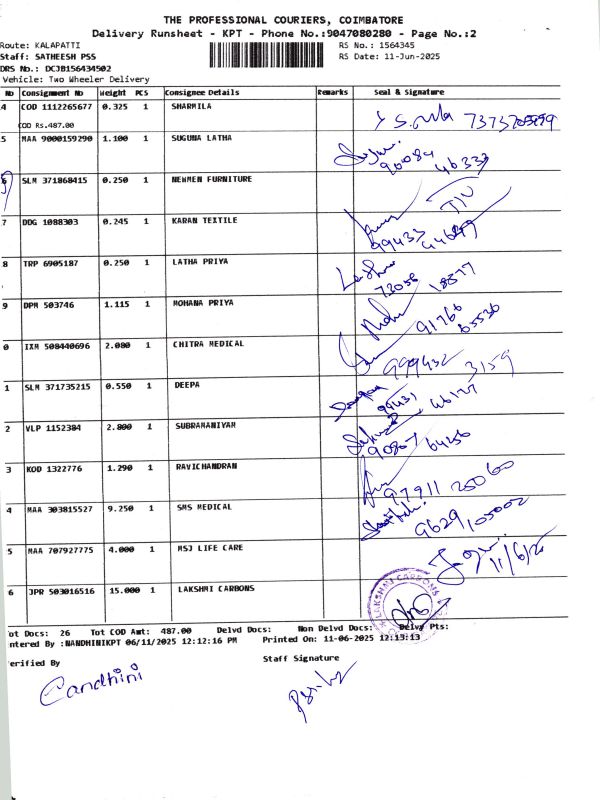 THE PROFESSIONAL COURIERS, COIMBATORE
Delivery Runsheet - KPT - Phone No.:9047080280 - Page No.:2
Route: KALAPATTI RS No.: 1564345
Staff: SATHEESH PSS RS Date: 11-Jun-2025
DRS No.: DCJB156434502
Vehicle: Two Wheeler Delivery
No Consignment No Weight PCS Consignee Details Remarks Seal & Signature
4 COD 1112265677 0.325 1 SHARMILA
COD Rs.487.00
5 MAA 9000159290 1.100 1 SUGUNA LATHA
90084 46333
6 SLM 371868415 0.250 1 NEWMEN FURNITURE
7 DDG 1088303 0.245 1 KARAN TEXTILE
99433
8 TRP 6905187 0.250 1 LATHA PRIYA
73056 18877
9 DPM 503746 1.115 1 MOHANA PRIYA
91766 65536
0 IXM 508440696 2.080 1 CHITRA MEDICAL
999432 3159
1 SLM 371735215 0.550 1 DEEPA
99431 46127
2 VLP 1152384 2.800 1 SUBRAMANIYAR
64256
3 KOD 1322776 1.290 1 RAVICHANDRAN
97911 25060
4 MAA 303815527 9.250 1 SMS MEDICAL
9629 105002
5 MAA 707927775 4.000 1 MSJ LIFE CARE
11/6/25
6 JPR 503016516 15.000 1 LAKSHMI CARBONS
LAKSHMI CARBONS
ot Docs: 26 Tot COD Amt: 487.00 Delvd Docs: Non Delvd Docs: Delvy Pts:
ntered By :NANDHINIKPT 06/11/2025 12:12:16 PM Printed On: 11-06-2025 12:13:13
erified By Staff Signature
Candhini